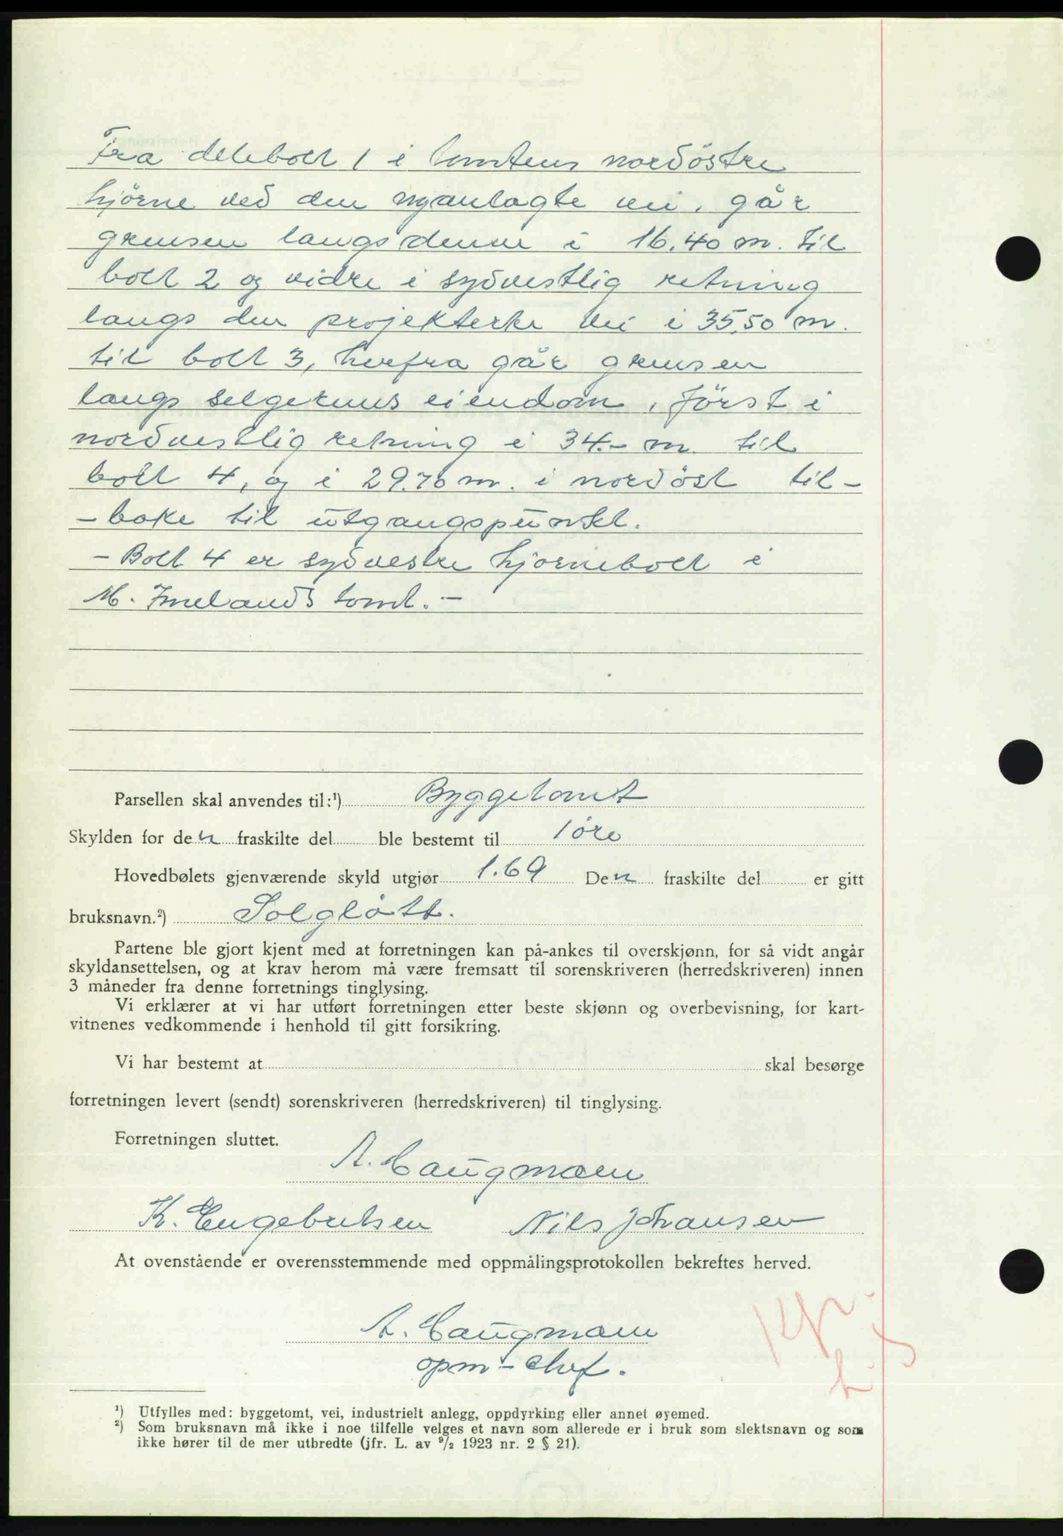 Fra delebolt 1 i tomtens nordöstre
hjörne ved den nyanlagte vei, går
grensen langs denne i 16.40 m. til
bolt 2 og vidre i sydvestlig retning
langs den projekterte vei i 35,50 m.
til bolt 3, herfra går grensen
langs selgerens eiendom, först i
nordvestlig retning i 34.- m. til
bolt 4, og i 29.70 m. i nordöst til-
-bake til utgangspunktet.
- Bolt 4 er sydvestre hjörnebolt i
M. Imelands tomt. -
Parsellen skal anvendes til:¹) Byggetomt
Skylden for den fraskilte del ble bestemt til 1 øre
Hovedbølets gjenværende skyld utgjør 1.69 Den fraskilte del er gitt
bruksnavn.²) Solgløtt.
Partene ble gjort kjent med at forretningen kan på-ankes til overskjønn, for så vidt angår
skyldansettelsen, og at krav herom må være fremsatt til sorenskriveren (herredskriveren) innen
3 måneder fra denne forretnings tinglysing.
Vi erklærer at vi har utført forretningen etter beste skjønn og overbevisning, for kart-
vitnenes vedkommende i henhold til gitt forsikring.
Vi har bestemt at skal besørge
forretningen levert (sendt) sorenskriveren (herredskriveren) til tinglysing.
Forretningen sluttet.
A. Haugmoen
K. Engebretsen Nils Johansen
At ovenstående er overensstemmende med oppmålingsprotokollen bekreftes herved.
A. Haugmoen
opm-chef.
¹) Utfylles med: byggetomt, vei, industrielt anlegg, oppdyrking eller annet øyemed.
²) Som bruksnavn må ikke i noe tilfelle velges et navn som allerede er i bruk som slektsnavn og som
ikke hører til de mer utbredte (jfr. L. av ⁹/₂ 1923 nr. 2 § 21).